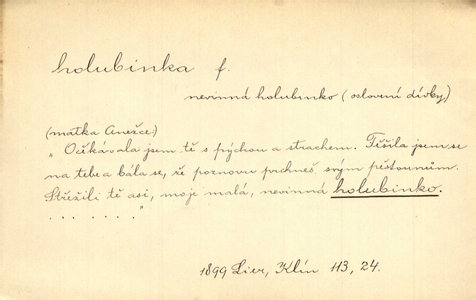 holubinka f.
nevinná holubinko (oslovní dívky)
(matka Anežce:)
„Očekávala jsem tě s pýchou a strachem. Těšila jsem se
na tebe a bála se, že poznovu prchneš svým pěstounům.
Střežili tě asi, moje malá, nevinná holubinko.
. . . . . . ."
1899 Lier, Klín 113, 24.